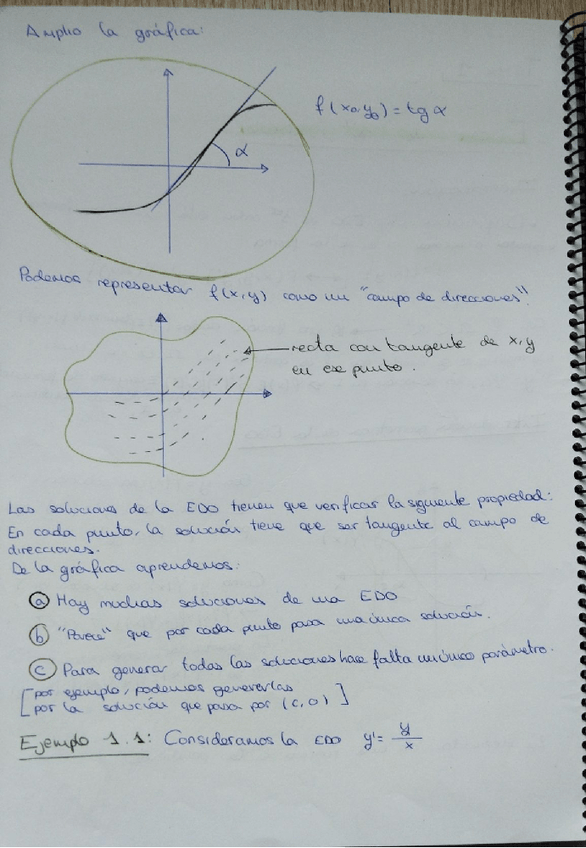 Amplio la gráfica:
f(x0,y0) = tg α
α
Podemos representar f(x,y) como un "campo de direcciones".
recta con tangente de x,y
en ese punto.
Las soluciones de la EDO tienen que verificar la siguiente propiedad:
En cada punto, la solución tiene que ser tangente al campo de
direcciones.
De la gráfica aprendemos:
a Hay muchas soluciones de una EDO
b "Parece" que por cada punto pasa una única solución.
c Para generar todas las soluciones hace falta un único parámetro.
[por ejemplo, podemos generarlas
por la solución que pasa por (c,0)]
Ejemplo 1.1: Consideramos la EDO y' = y/x